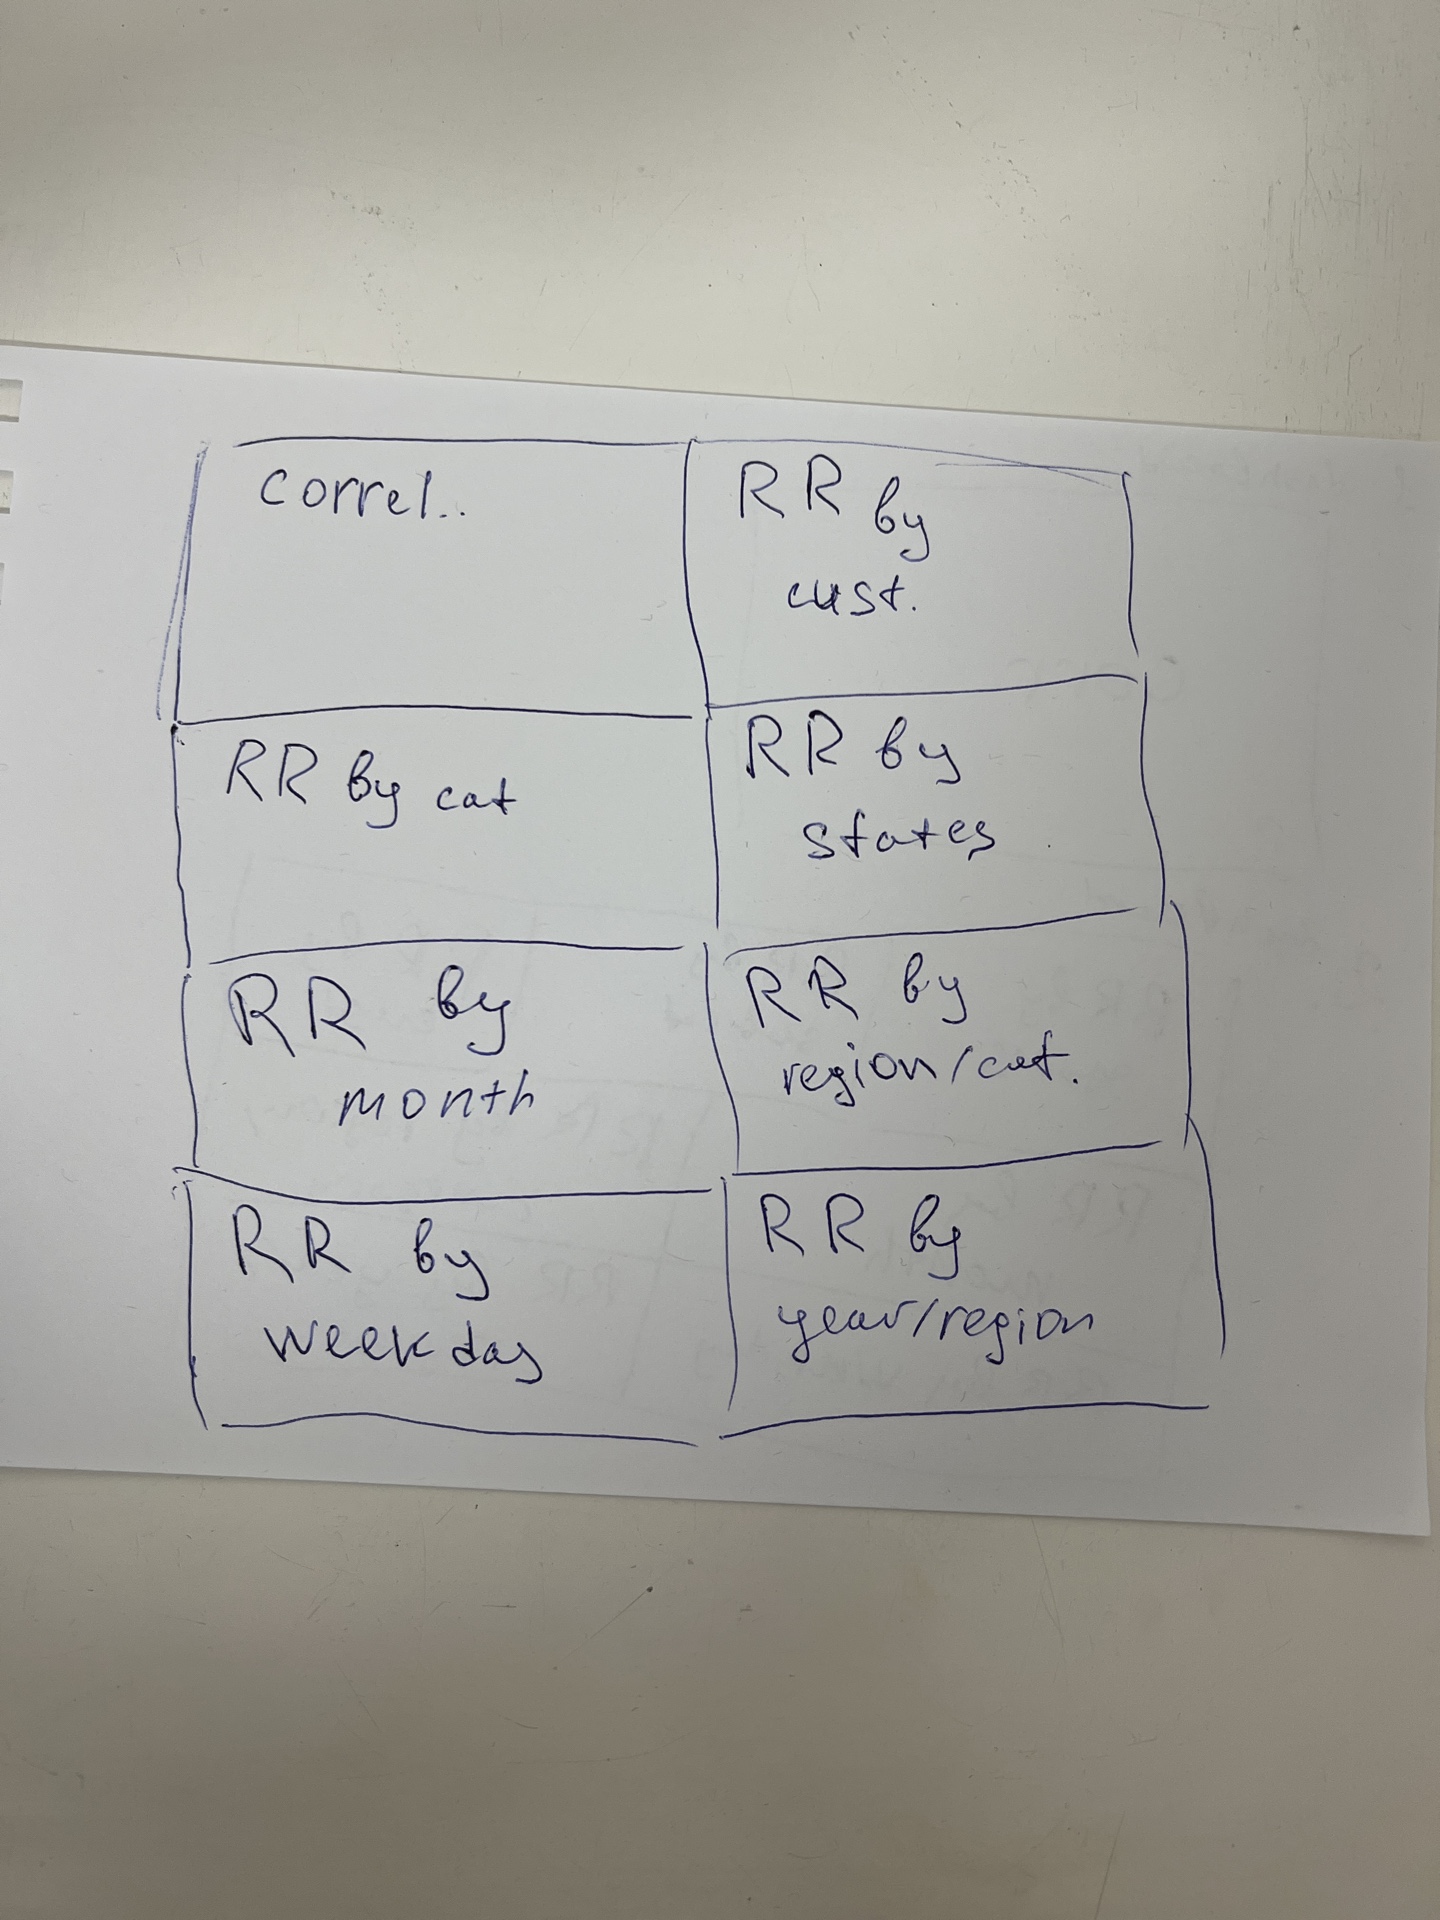 correl..
RR by
cust.
RR by cat
RR by
states
RR by
month
RR by
region/cat.
RR by
weekday
RR by
year/region